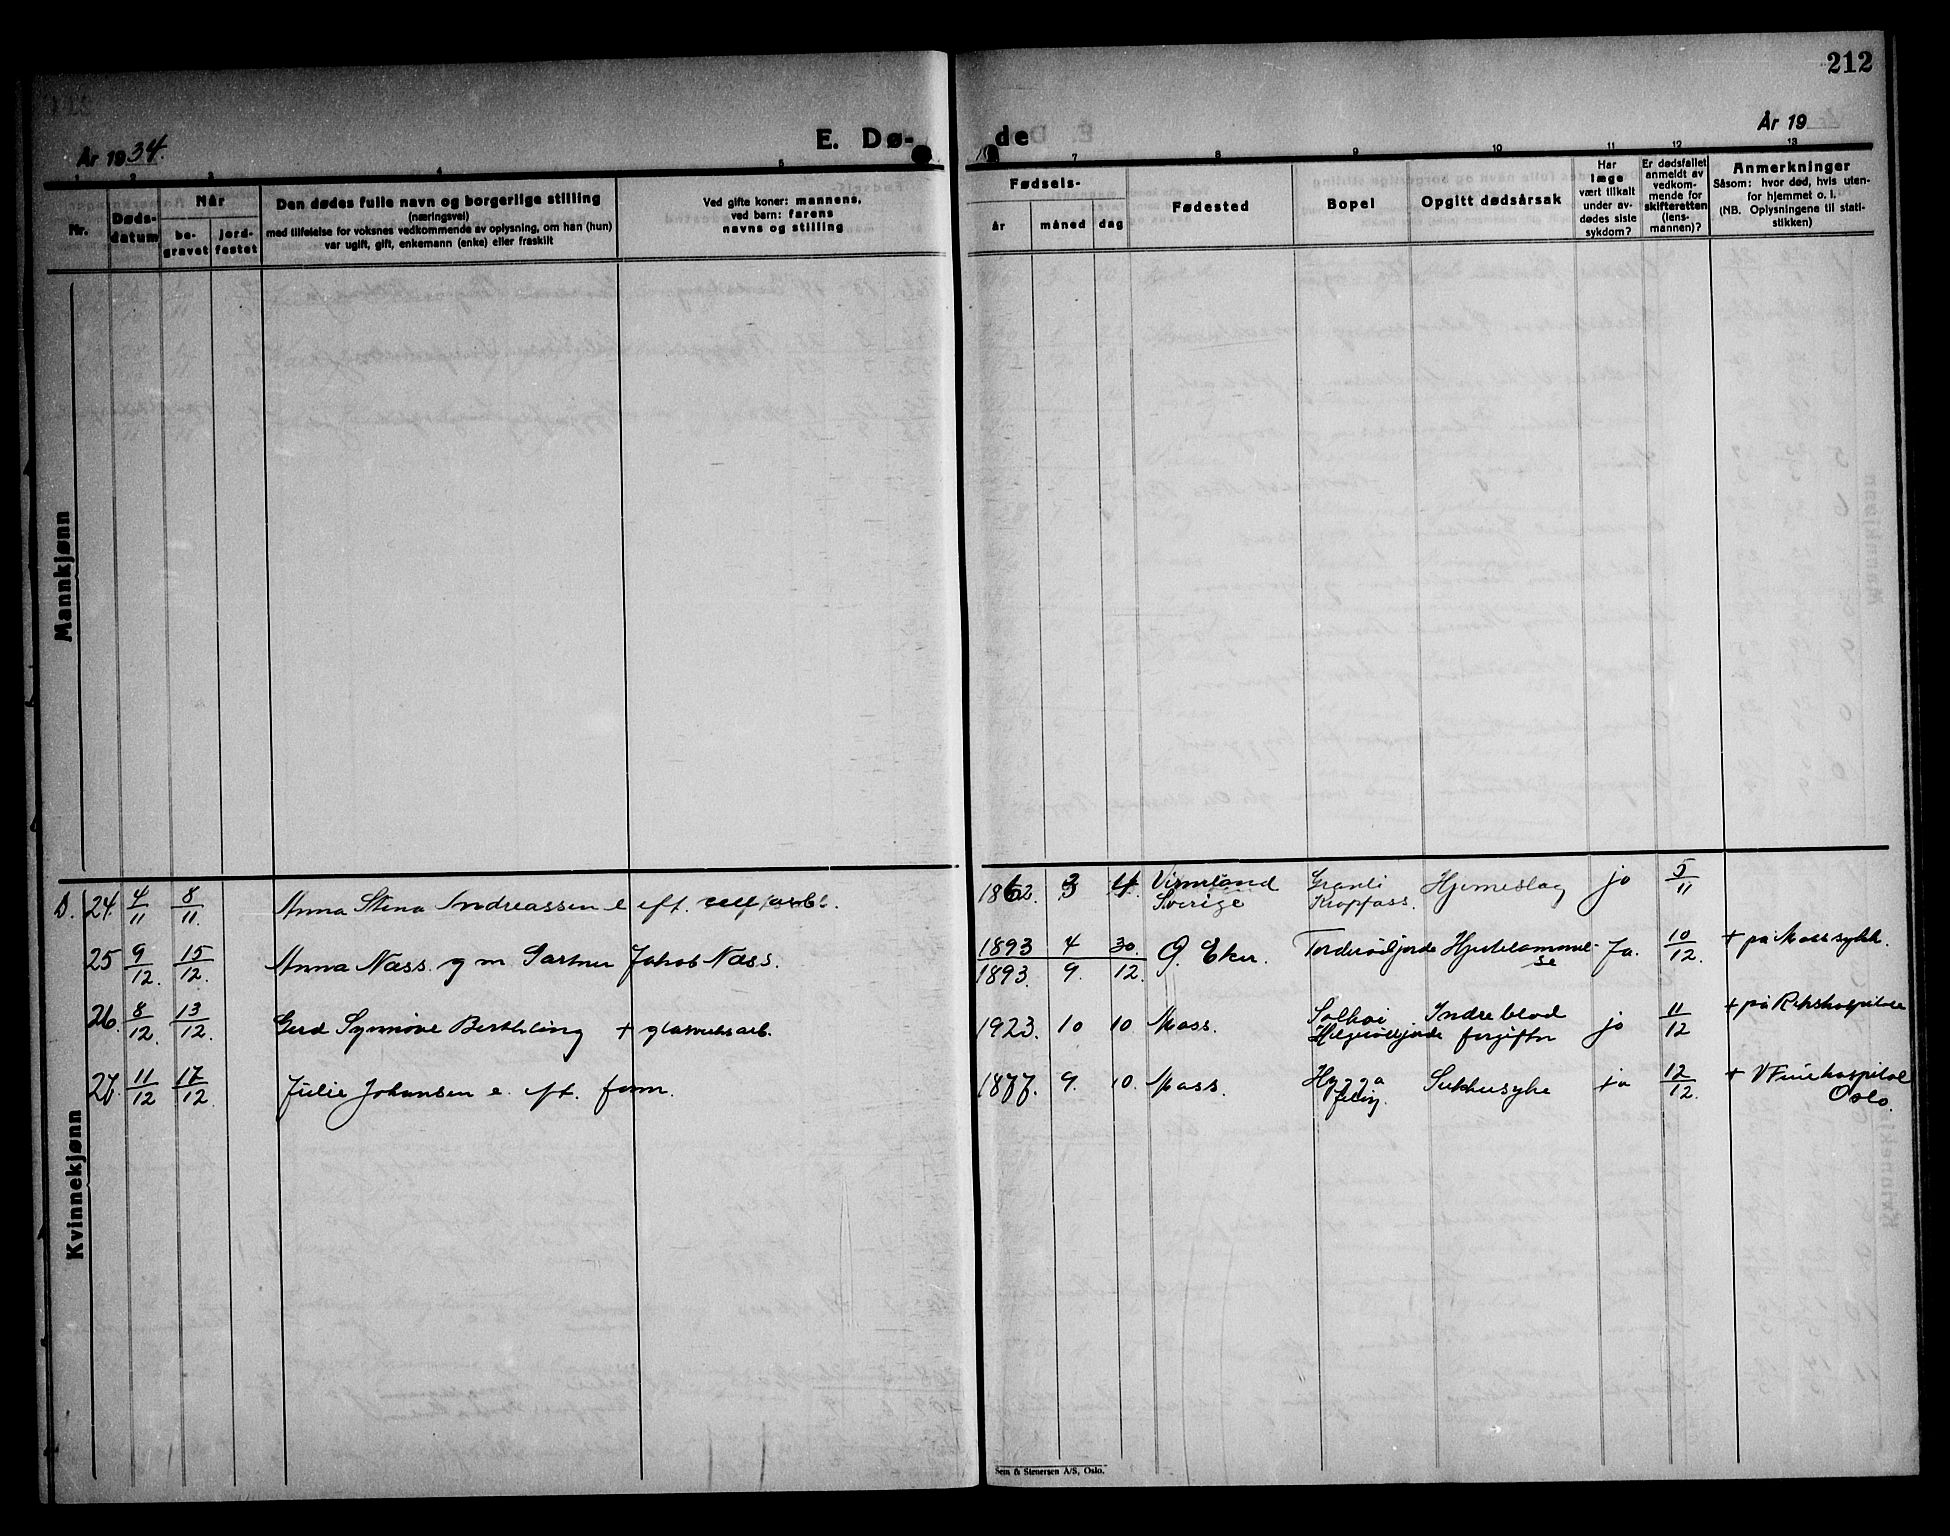 212
År 1934.
E. Dø-
de
År 19
1 2 3 4 5
7 8 9 10 11 12 13
Nr.
Døds-
datum
Når
be-
gravet
jord-
festet
Den dødes fulle navn og borgerlige stilling
(næringsvei)
med tilføielse for voksnes vedkommende av oplysning, om han (hun)
var ugift, gift, enkemann (enke) eller fraskilt
Ved gifte koner: mannens,
ved barn: farens
navns og stilling
Fødsels-
år måned dag
Fødested
Bopel
Opgitt dødsårsak
Har
læge
vært tilkalt
under av-
dødes siste
sykdom?
Er dødsfallet
anmeldt av
vedkom-
mende for
skifteretten
(lens-
mannen)?
Anmerkninger
Såsom: hvor død, hvis uten-
for hjemmet o. l.
(NB. Oplysningene til stati-
stikken)
Mannkjønn
Kvinnekjønn
D. 24. 4/11 8/11. Anna Stina Andreassen e eft. cell.arb. 1862. 3 4. Vermland Sverige Granli Kropfass. Hjerneslag jo 5/11
25 9/12. 15/12. Anna Næss. g m Gartner Jakob Næss. 1893 4 30. 1893. 9. 12. Ø. Eker. Torderødjorde Hjertelammelse Ja. 10/12. + på Moss sykh.
26. 8/12. 13/12. Gerd Synnøve Berthling + glasverksarb. 1923. 10 10 Moss. Solhøi Helgerødjorde Indre blodforgiftn jo 11/12 + på Rikshospitalet
27. 11/12 17/12 Julie Johansen e. eft. form. 1877. 9. 10. Moss. Hygga Jeløy. Sukkersyke ja 12/12. + V Frue hospital Oslo.
Sem & Stenersen A/S, Oslo.